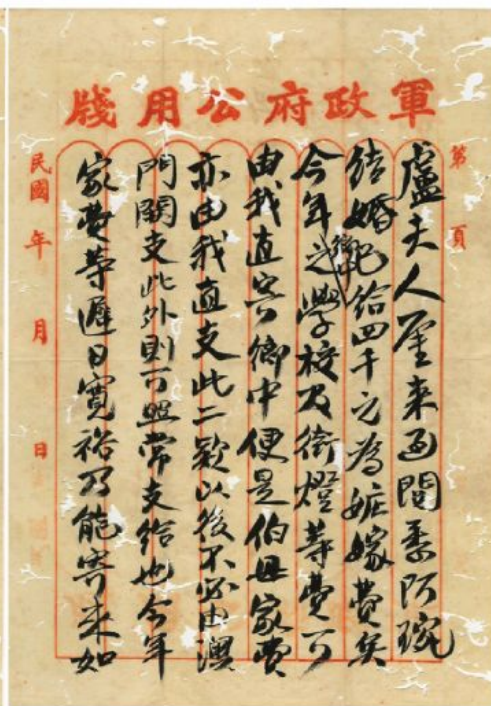 軍政府公用牋
第 頁
盧夫人鑒來函閱悉阿琬
結婚已給四千元為嫁費矣
今年之鄉中學校及街燈等費可
由我直寄鄉中便是伯母家費
亦由我直支此二款以後不必由澳
門關支此外則可照常支給也今年
家費等遲日寬裕乃能寄來如
民國 年 月 日